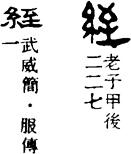 經
老子甲後
二二七
經
武威簡・服傳
一